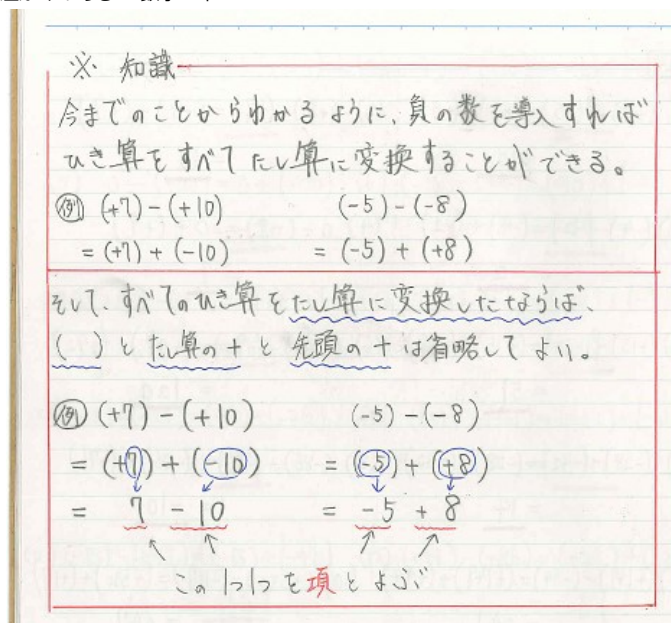 ※ 知識
今までのことからわかるように、負の数を導入すれば
ひき算をすべてたし算に変換することができる。
例 (+7)-(+10) (-5)-(-8)
=(+7)+(-10) =(-5)+(+8)
そして、すべてのひき算をたし算に変換したならば、
( )とたし算の+と先頭の+は省略してよい。
例 (+7)-(+10) (-5)-(-8)
=(+7)+(-10) =(-5)+(+8)
= 7 -10 = -5 +8
この1つ1つを項とよぶ